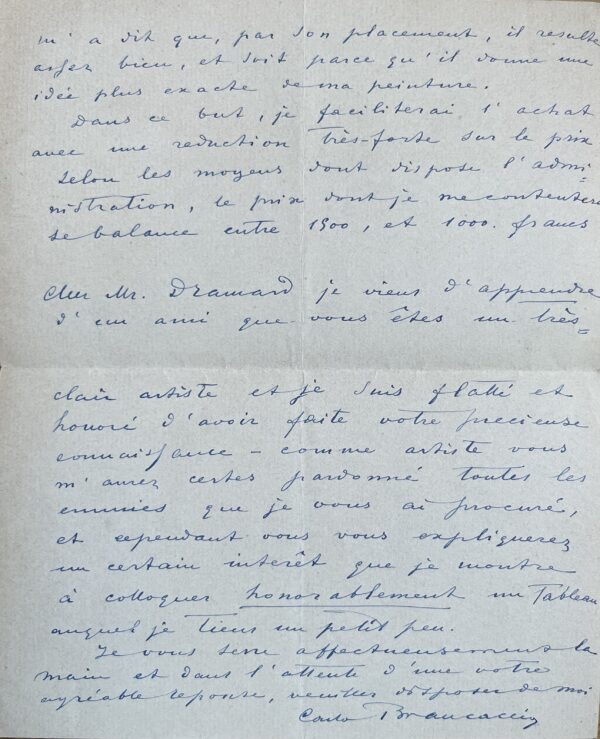 m'a dit que, par son placement, il resulte
assez bien, et soit parce qu'il donne une
idée plus exacte de ma peinture.
Dans ce but, je faciliterai l'achat
avec une reduction très-forte sur le prix
selon les moyens dont dispose l'admi-
nistration, le prix dont je me contenterai
se balance entre 1500, et 1000. francs
Cher Mr. Dramard je viens d'apprendre
d'un ami que vous êtes un très=
clair artiste et je suis flatté et
honoré d'avoir faite votre precieuse
connaissance - comme artiste vous
m'aurez certes pardonné toutes les
ennuies que je vous ai procuré,
et cependant vous vous expliquerez
un certain interêt que je montre
à colloquer honorablement un Tableau
auquel je tiens un petit peu.
Je vous serre affectueusement la
main et dans l'attente d'une votre
agréable reponse, veuillez disposer de moi
Carlo Brancaccio